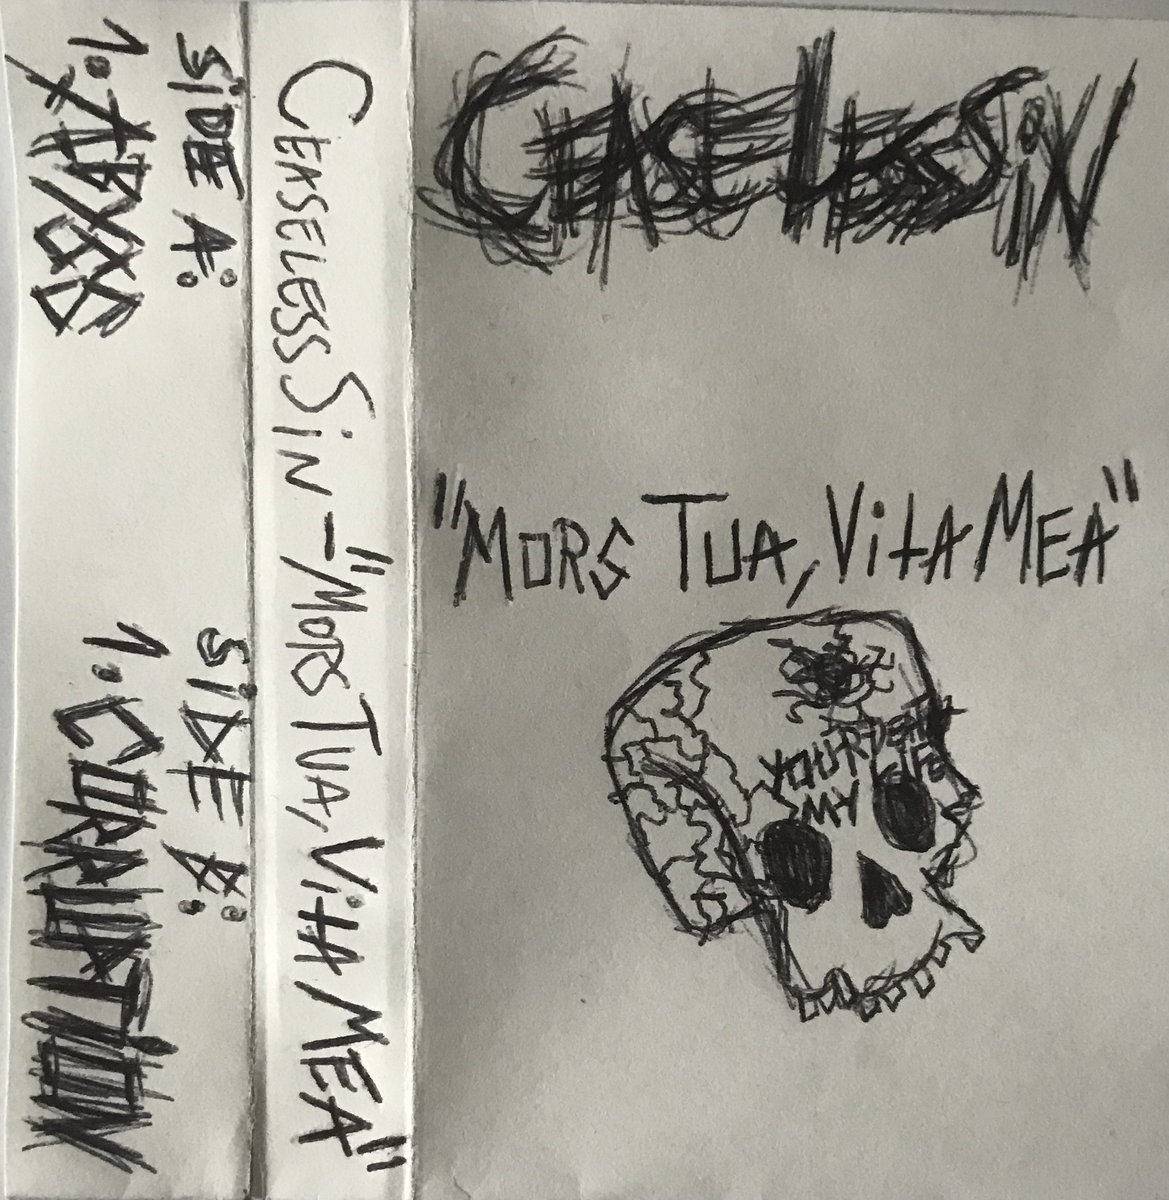 SiDE A:
1. ABYSS
SiDE B:
1. CORRUPTiON
CEASELESS SiN - "MORS TUA, ViTA MEA"
CEASELESS SiN
"MORS TUA, ViTA MEA"
YOUR DEATH
MY LiFE